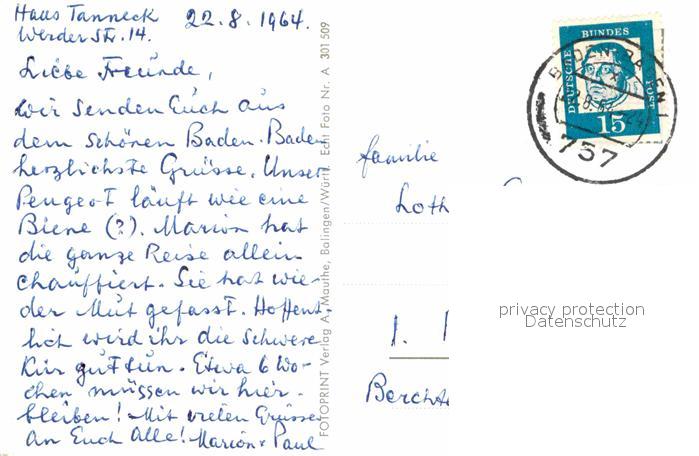 Haus Tanneck 22.8.1964.
Werder Str. 14.
Liebe Freunde,
Wir senden Euch aus
dem schönen Baden-Baden
herzlichste Grüsse. Unser
Peugeot läuft wie eine
Biene (?). Marion hat
die ganze Reise allein
chauffiert. Sie hat wie-
der Mut gefasst. Hoffent-
lich wird ihr die schwere
Kur guttun. Etwa 6 Wo-
chen müssen wir hier-
bleiben! Mit vielen Grüssen
An Euch Alle! Marion + Paul
FOTOPRINT Verlag A. Mauthe, Balingen/Württ. Echt Foto Nr. A 301 509
DEUTSCHE BUNDESPOST
15
BADEN-BADEN 1
757
Familie
Loth
1.
Berchte
privacy protection
Datenschutz